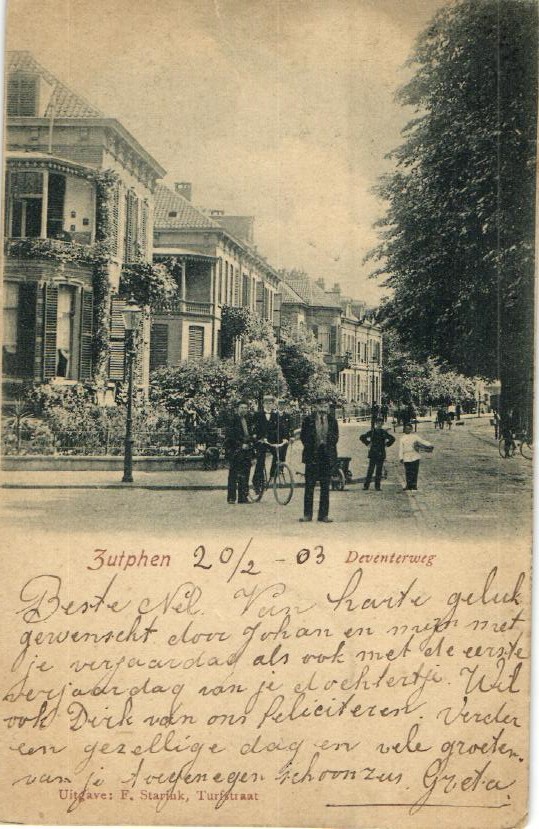 Zutphen 20/2 - 03 Deventerweg
Beste Nel. Van harte geluk
gewenscht door Johan en mijn met
je verjaardag als ook met de eerste
verjaardag van je dochtertje. Wil
ook Dirk van ons feliciteren. Verder
een gezellige dag en vele groeten.
van je toegenegen schoonzus. Greta.
Uitgave: F. Starink, Turfstraat